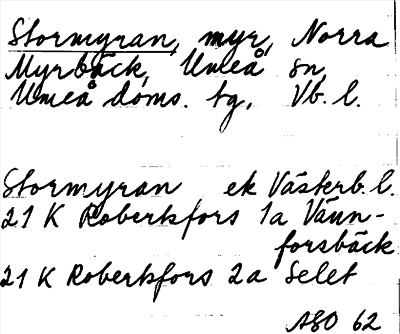 Stormyran, myr, Norra
Myrbäck, Umeå sn,
Umeå doms. tg, Vb. l.
Stormyran ek Västerb. l.
21 K Robertsfors 1a Vänn-
forsbäck
21 K Robertsfors 2a Selet
ASO 62